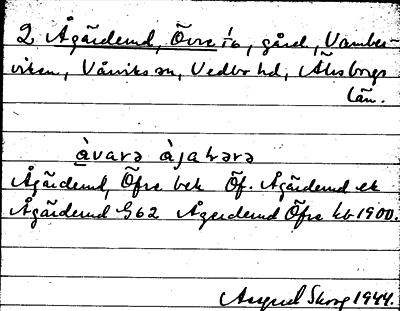 2 Ågärdemd, Övre i o, gård, Vamber-
viken, Vårviks sn, Vedbo hd, Älvsborgs
län.
àvara àjahara
Ågärdemd, Öfre bek Öf. Ågärdemd ek
Ågärdemd G62 Ågerdemd Öfre kb 1900.
Skoog 1944.